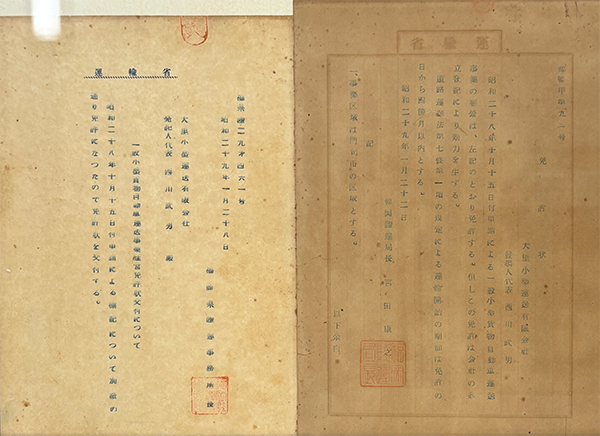 運輸省
昭和二十九年一月二十八日
大里小型運送有限会社
発起人代表 西川武男 殿
一般小型貨物自動車運送事業経営免許状交付について
昭和二十八年十月十五日付申請による標記について別紙の
通り免許になつたので免許状を交付する。
福岡県陸運事務所長
運輸省
免許状
大里小型運送有限会社
発起人代表 西川武男
昭和二十八年十月十五日付申請による一般小型貨物自動車運送
事業の経営は、左記のとおり免許する。但しこの免許は会社の
立登記により効力を生ずる。
道路運送法第七条第一項の規定による運輸開始の期限は免許の
日から四箇月以内とする。
昭和二十九年一月二十二日
福岡陸運局長 宮田康之
記
一、事業区域は門司市の区域とする。
以下余白